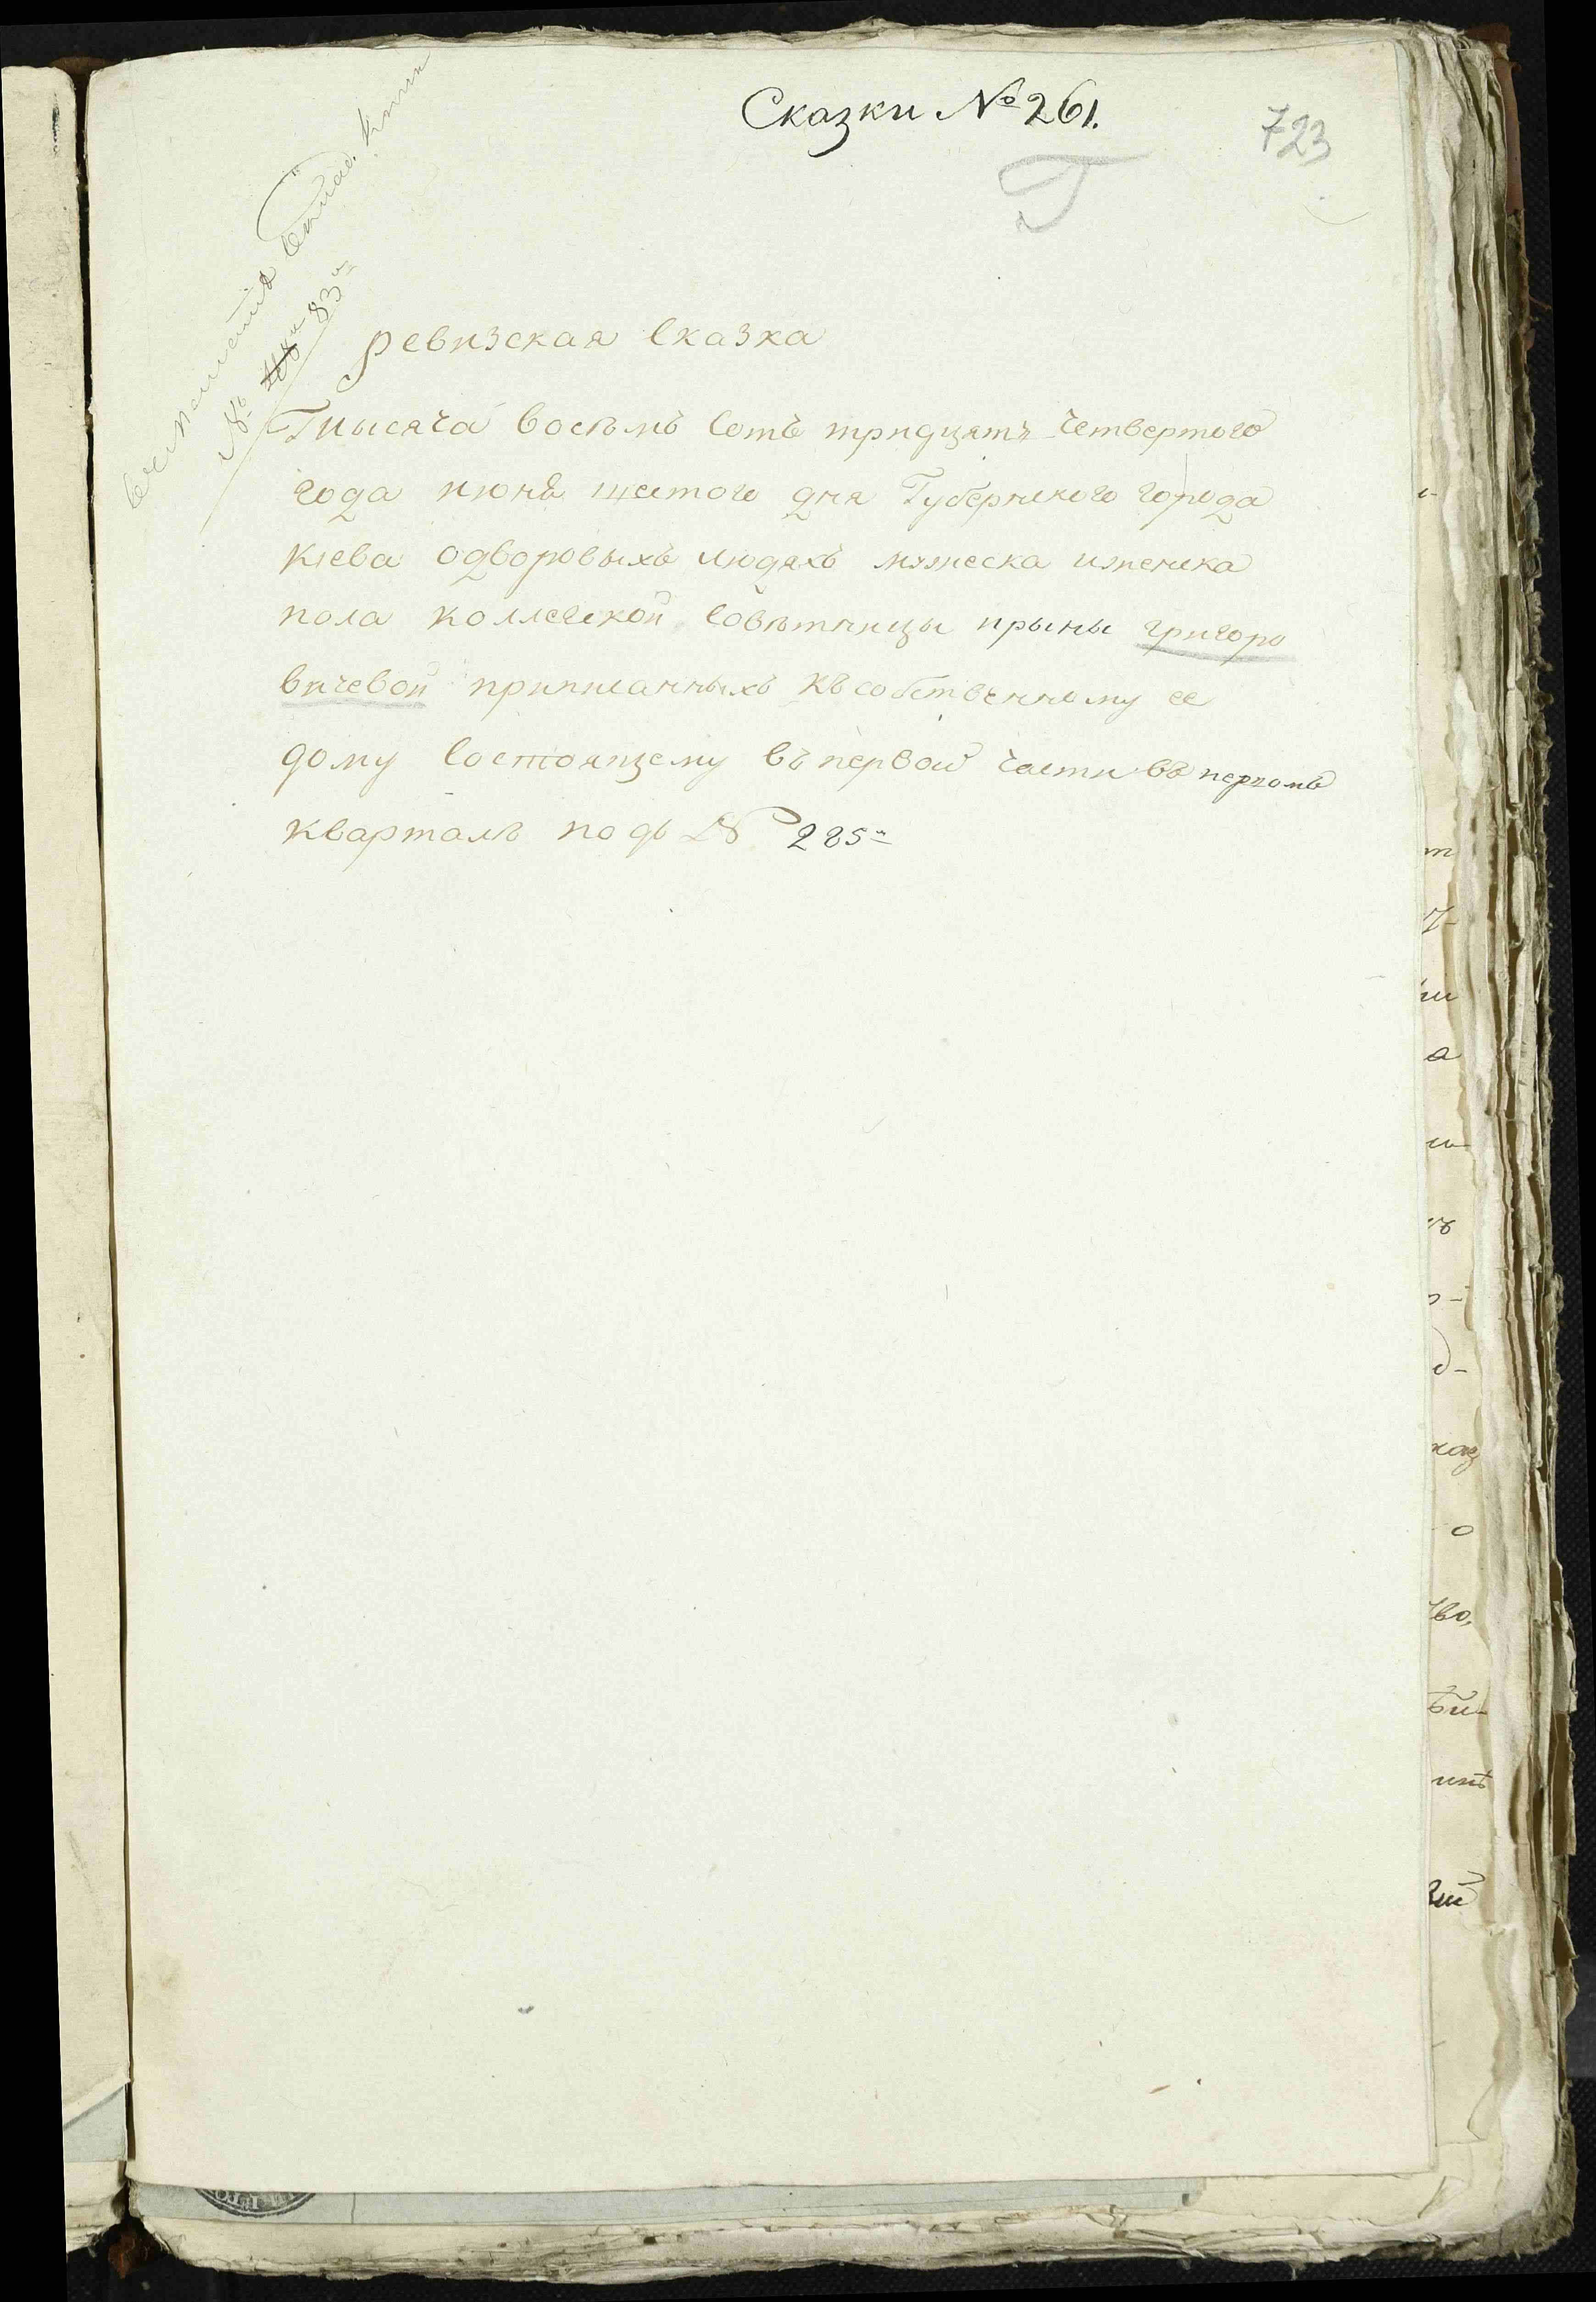 Сказки № 261.
723
№ 83
ревизская сказка
Тысяча восѣмь сотъ тридцять четвертого
года июня шестого дня Губернского города
Киева одворовыхъ людяхъ мужеска иженска
пола коллегской совѣтницы ирыны григоро
вичевой приписанныхъ къ собственному ее
дому состоящему въ первой части въ первомъ
кварталѣ подъ № 285